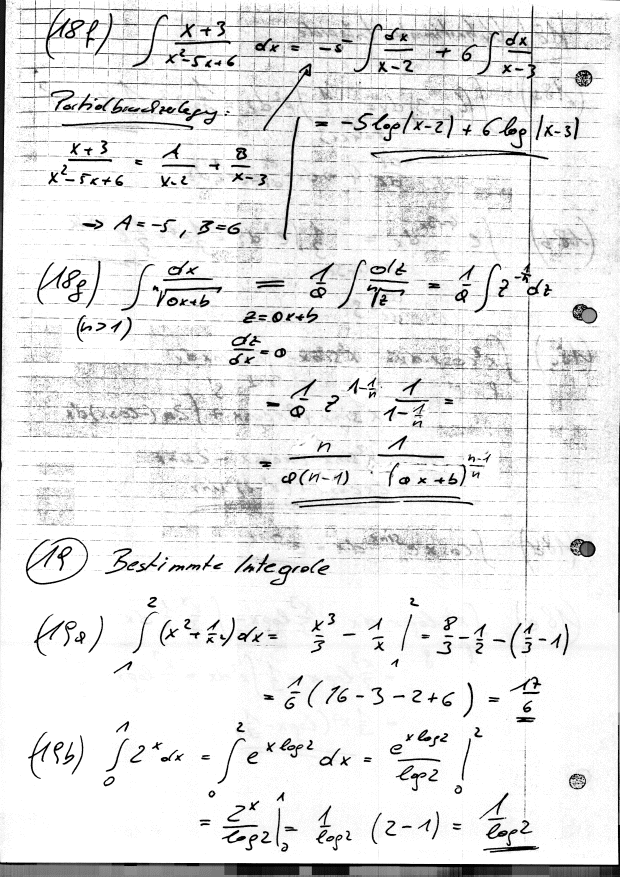 (18f) ∫ (x+3)/(x²-5x+6) dx = -5 ∫ dx/(x-2) + 6 ∫ dx/(x-3)
Partialbruchzerlegung:
= -5 log|x-2| + 6 log|x-3|
(x+3)/(x²-5x+6) = A/(x-2) + B/(x-3)
→ A = -5, B = 6
(18g) ∫ dx/ⁿ√(ax+b) = 1/a ∫ dz/ⁿ√z = 1/a ∫ z^(-1/n) dz
(n>1) z = ax+b
dz/dx = a
= 1/a z^(1-1/n) · 1/(1-1/n) =
= n/(a(n-1)) · 1/(ax+b)^((n-1)/n)
(19) Bestimmte Integrale
(19a) ∫₁² (x² + 1/x²) dx = x³/3 - 1/x |₁² = 8/3 - 1/2 - (1/3 - 1)
= 1/6 (16 - 3 - 2 + 6) = 17/6
(19b) ∫₀¹ 2^x dx = ∫₀² e^(x log 2) dx = e^(x log 2)/log 2 |₀²
= 2^x/log 2 |₀¹ = 1/log 2 (2-1) = 1/log 2